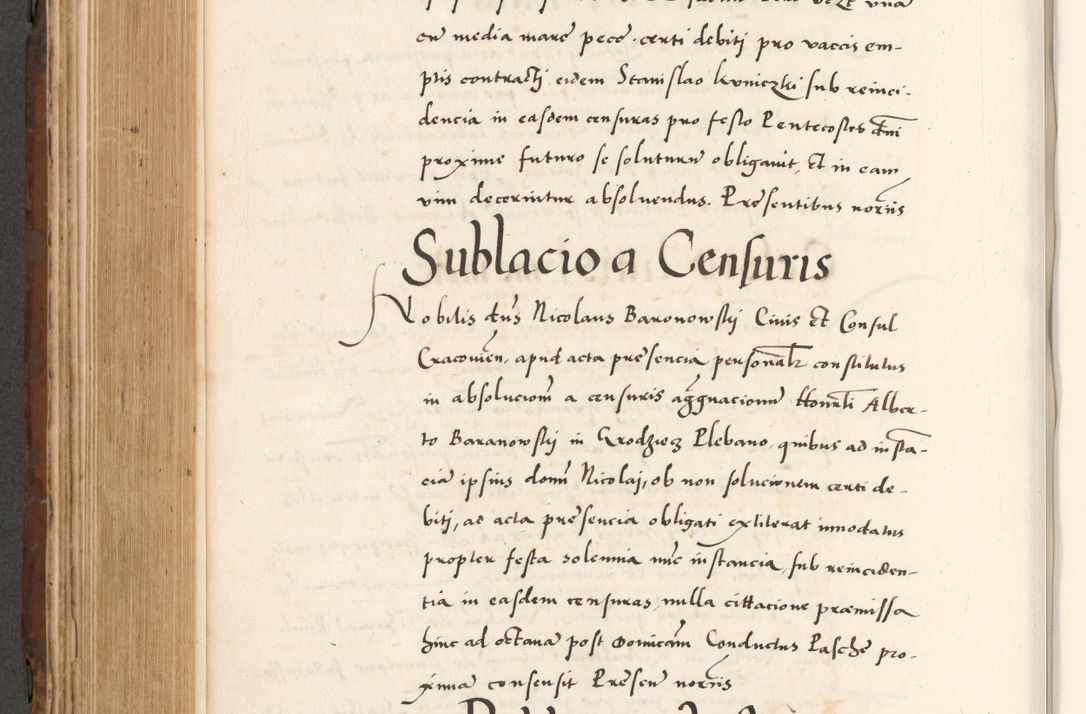 cu media marc pece. certi debiti pro vaccis em-
ptis contracti eidem Stanislao kuniczki sub reinci-
dencia in easdem censuras pro festo Pentecostes dni
proxime futuro se soluturu obligavit, et in eam
vim decernitur absolvendus. Presentibus noriis
Sublacio a Censuris
Nobilis dns Nicolaus Baronowskij Civis et Consul
Cracovien, apud acta presencia personalr constitutus
in absoluciom a censuris aggravacionu Honrli Alber-
to Baranowskij in Grodziecz Plebano, quibus ad insta-
cia ipsius domi Nicolaj, ob non solucionem certi de-
biti, ad acta presencia obligati extiterat innodatus
propter festa solennia nuc instancia, sub reinciden-
tia in easdem censuras, nulla cittacione praemissa
hinc ad octava post Domicam Conductus Pasche pro-
xima consensit Presen noriis